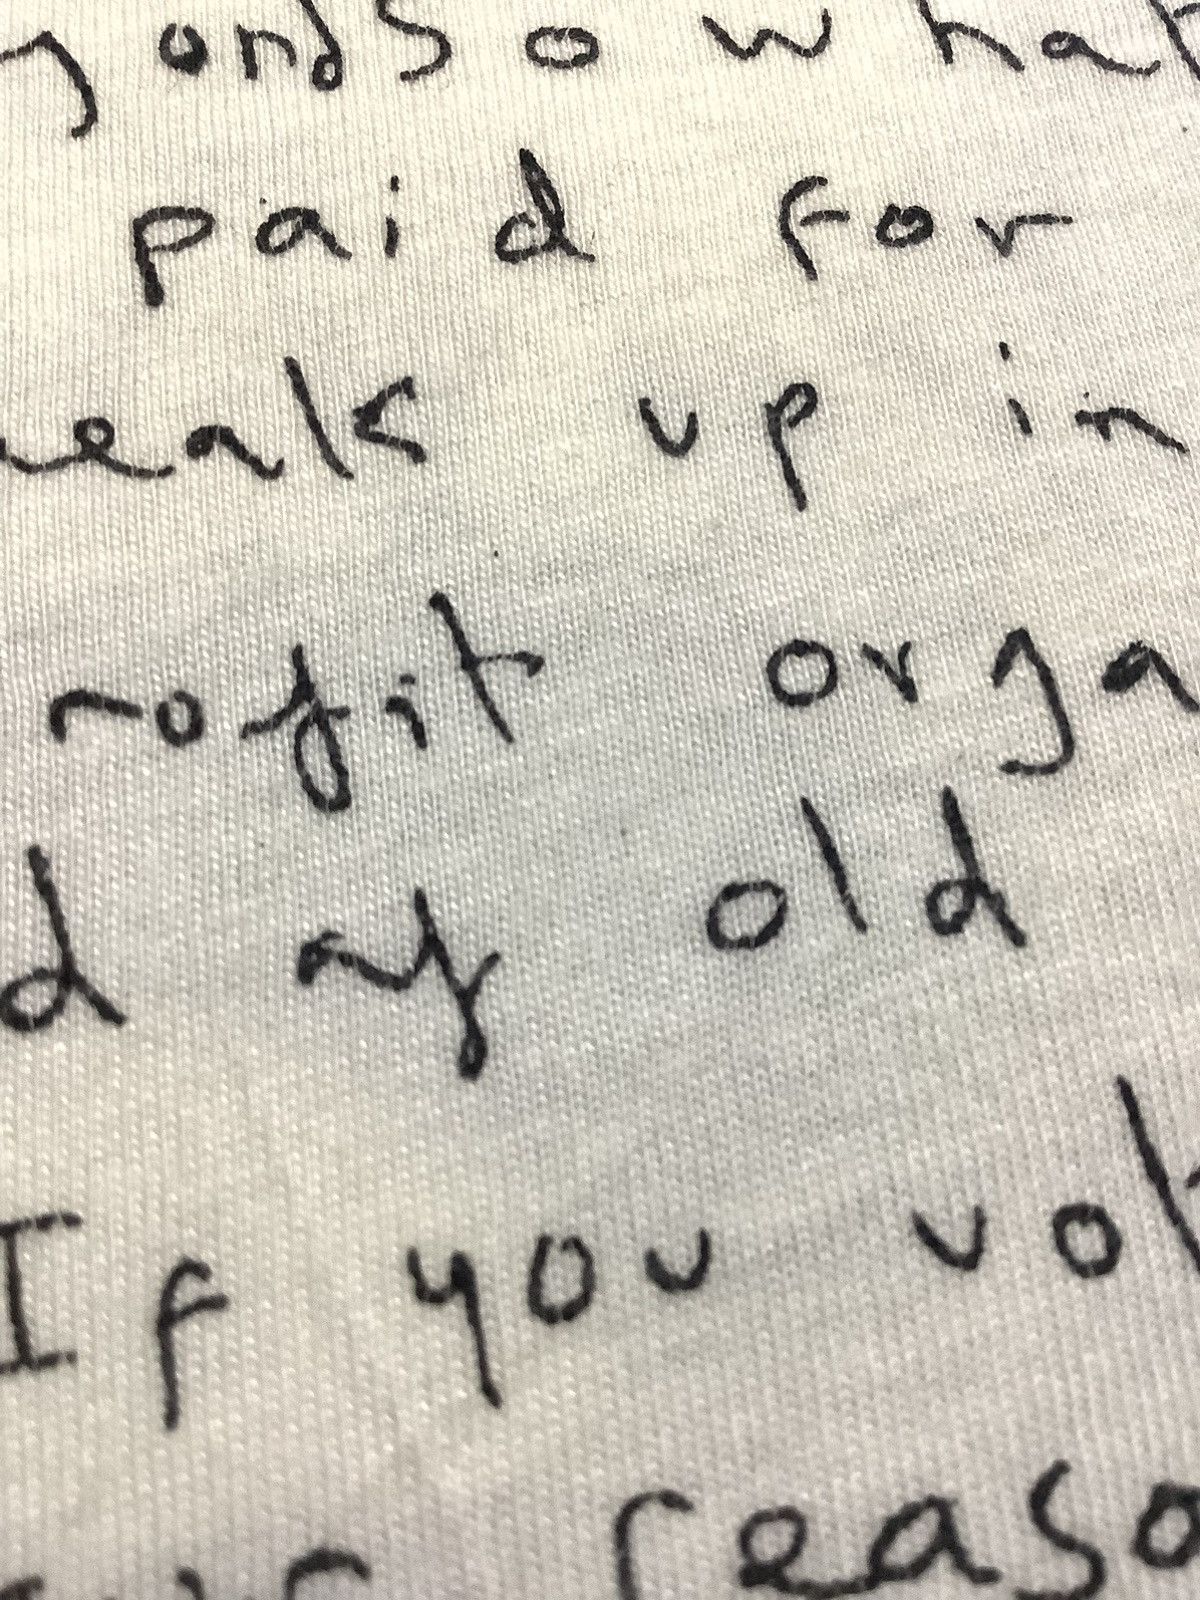 yondsowhat
paid for
reak up in
rofit orga
d af old
If you vol
reaso